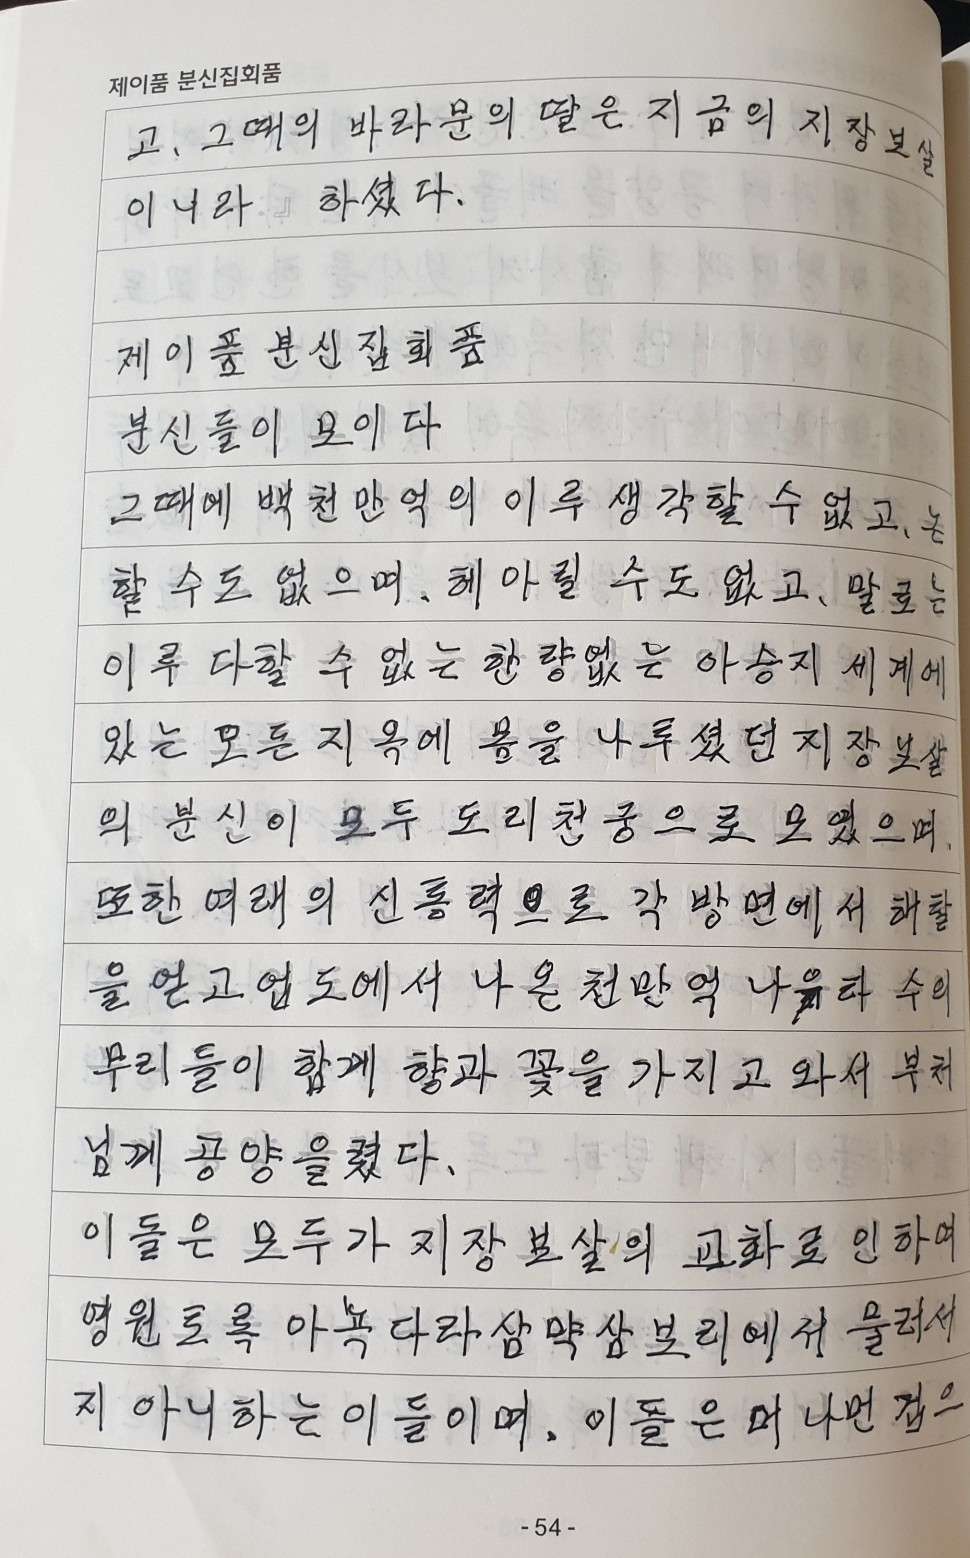 제이품 분신집회품
고, 그때의 바라문의 딸은 지금의 지장보살
이니라』 하셨다.
제이품 분신집회품
분신들이 모이다
그때에 백천만억의 이루 생각할 수 없고, 논
할 수도 없으며, 헤아릴 수도 없고, 말로는
이루 다할 수 없는 한량없는 아승지 세계에
있는 모든 지옥에 몸을 나투셨던 지장보살
의 분신이 모두 도리천궁으로 모였으며,
또한 여래의 신통력으로 각 방면에서 해탈
을 얻고 업도에서 나온 천만억 나유타 수의
무리들이 함게 향과 꽃을 가지고 와서 부처
님께 공양을렸다.
이들은 모두가 지장보살의 교화로 인하여
영원토록 아뇩다라삼먁삼보리에서 물러서
지 아니하는 이들이며, 이들은 머나먼 겁으
- 54 -